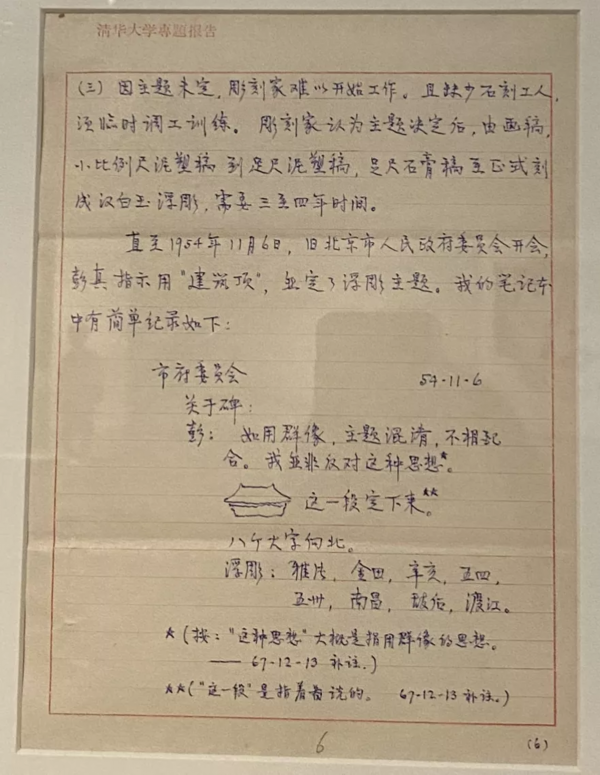 清华大学专题报告
(三) 因主题未定, 彫刻家难以开始工作。且缺少石刻工人,
须临时调工训练。彫刻家认为主题决定后, 由画稿,
小比例尺泥塑稿到足尺泥塑稿, 足尺石膏稿至正式刻
成汉白玉浮彫, 需要三至四年时间。
直至1954年11月6日, 旧北京市人民政府委员会开会,
彭真指示用"建筑顶", 並定了浮彫主题。我的笔记本
中有简单纪录如下:
市府委员会 54-11-6
关于碑:
彭: 如用群像, 主题混淆, 不相配
合。我並非反对这种思想*。
这一段定下来**。
八个大字向北。
浮彫: 雅片, 金田, 辛亥, 五四,
五卅, 南昌, 敌后, 渡江。
* (按: "这种思想"大概是指用群像的思想。
—— 67-12-13 补注.)
** ("这一段"是指着图说的。 67-12-13 补注。)
6 (6)